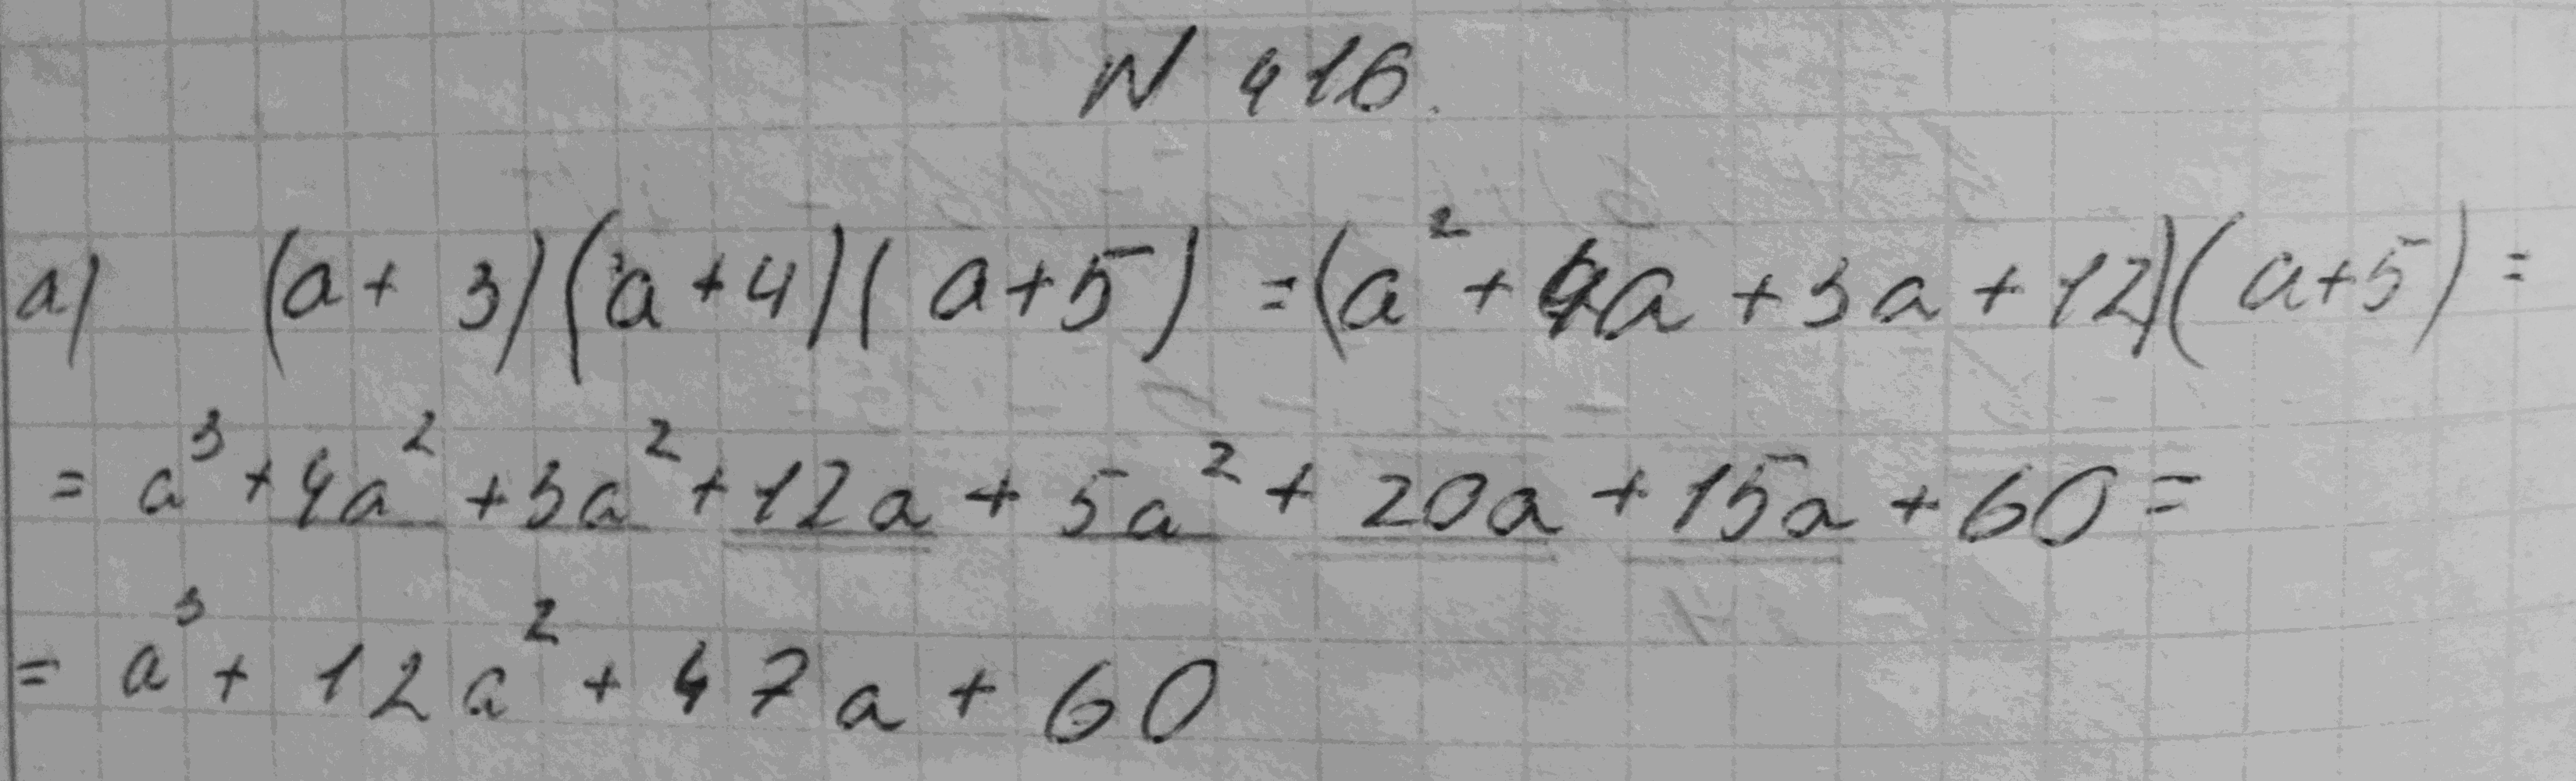 N 416.
а) (a + 3)(a + 4)(a + 5) = (a² + 4a + 3a + 12)(a + 5) =
= a³ + 4a² + 3a² + 12a + 5a² + 20a + 15a + 60 =
= a³ + 12a² + 47a + 60